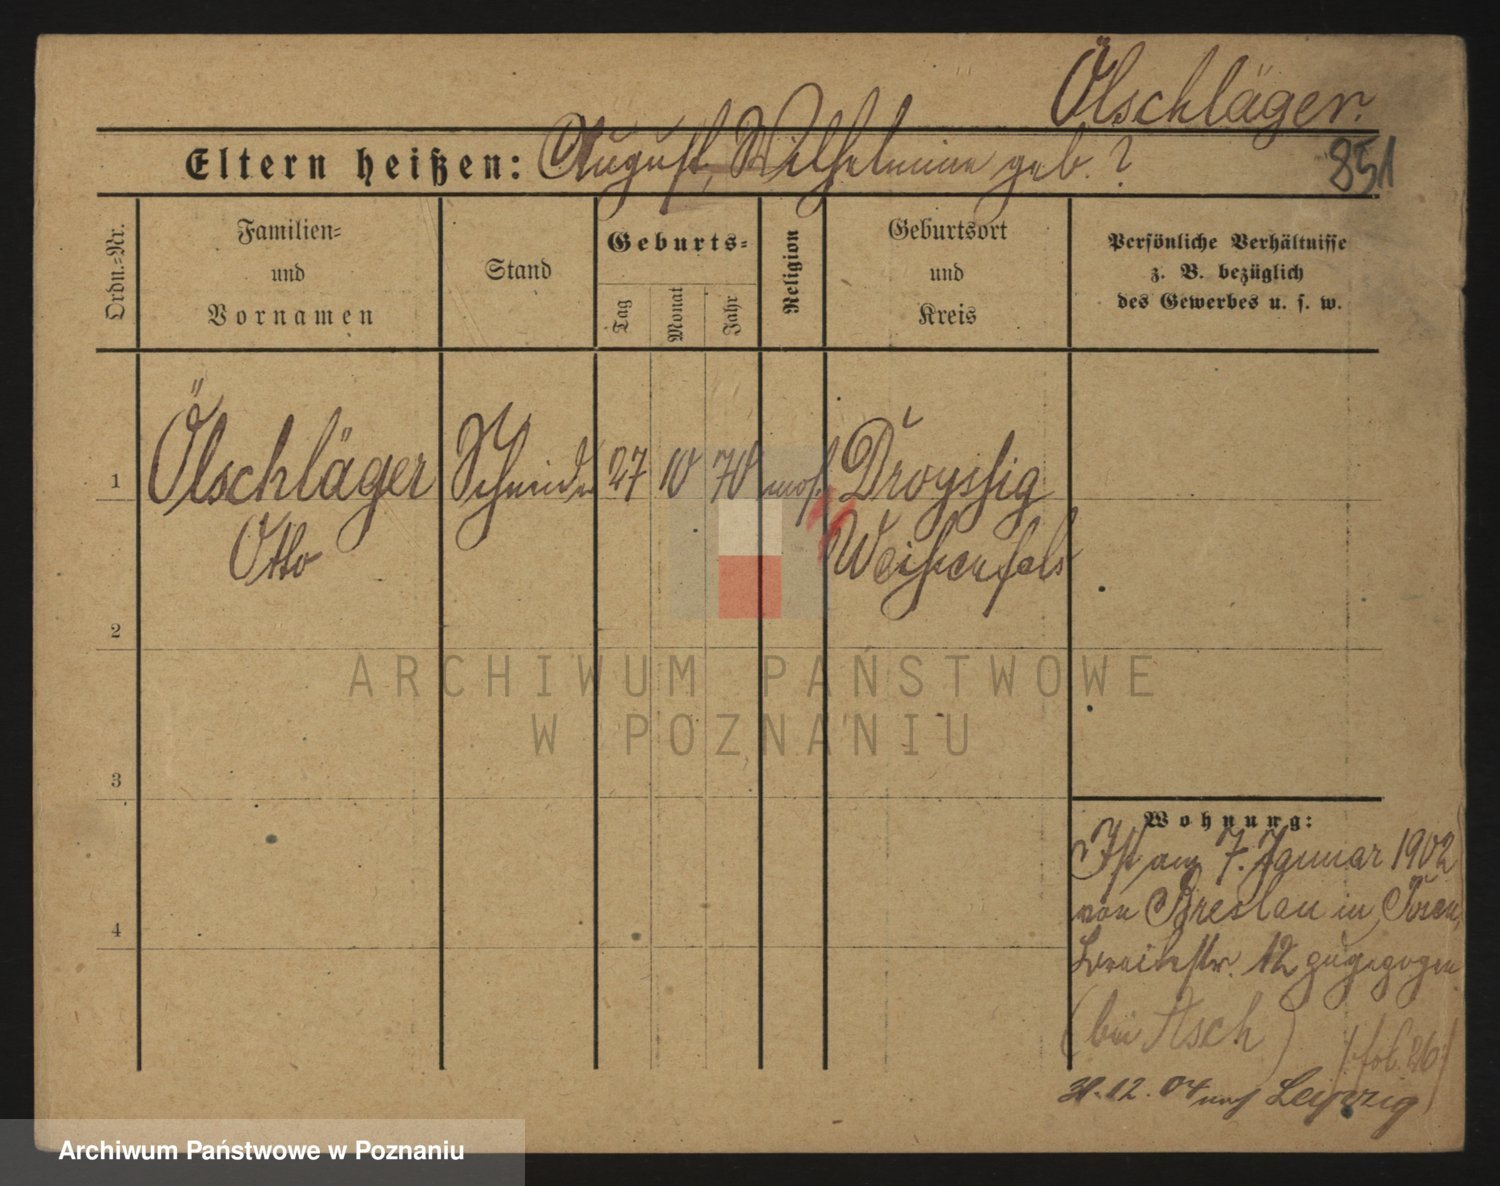 Ölschläger.
Eltern heißen: August, Wilhelmine geb. ?
851
Ordn.-Nr.
Familien-
und
Vornamen
Stand
Geburts-
Tag
Monat
Jahr
Religion
Geburtsort
und
Kreis
Persönliche Verhältnisse
z. B. bezüglich
des Gewerbes u. s. w.
1
Ölschläger
Otto
Schneider
27
10
70
mos.
Droyssig
Weißenfels
2
3
4
Wohnung:
Ist am 7. Januar 1902
von Breslau in Posen,
Breitestr. 12 zugezogen
(bei Asch)
/: fol. 26 :/
31.12.04 nach Leipzig
ARCHIWUM PAŃSTWOWE
W POZNANIU
Archiwum Państwowe w Poznaniu